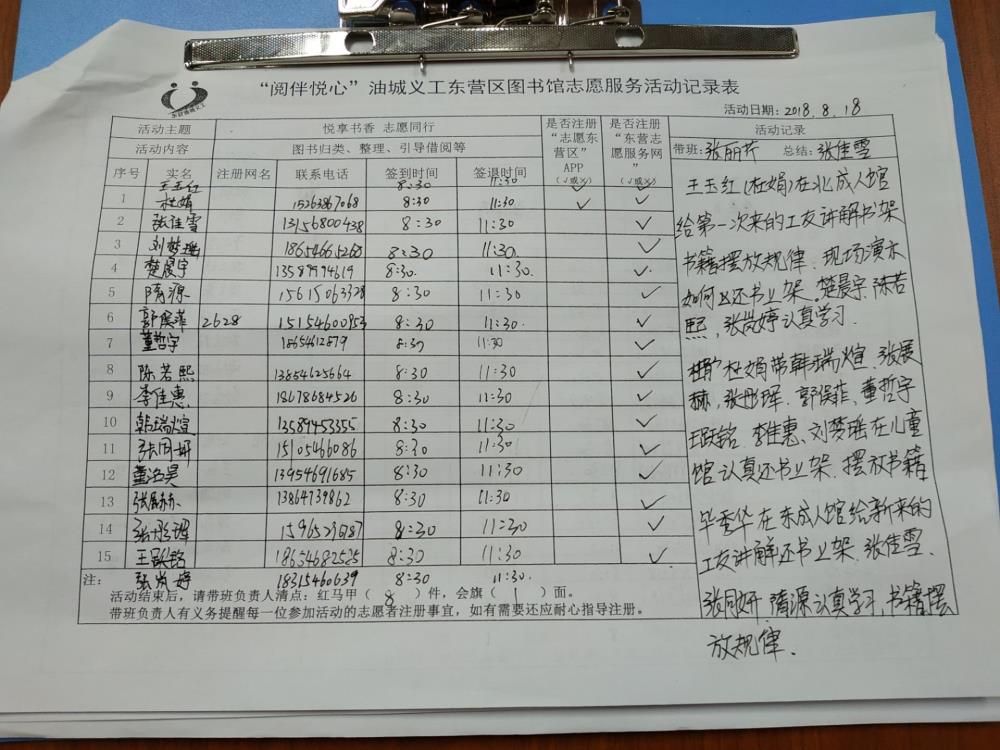 “阅伴悦心”油城义工东营区图书馆志愿服务活动记录表
活动日期: 2018.8.18
活动主题 悦享书香 志愿同行 是否注册“志愿东营区”APP (√或×) 是否注册“东营志愿服务网” (√或×) 活动记录
活动内容 图书归类、整理、引导借阅等 带班: 张丽芹 总结: 张佳雪
序号 实名 注册网名 联系电话 签到时间 签退时间
王玉红 8:30 11:30 ✓ ✓
1 杜娟 15263867068 8:30 11:30 ✓ ✓
2 张佳雪 13156800438 8:30 11:30 ✓
3 刘梦瑶 18654665260 8:30 11:30 ✓
4 楚晨宇 13589994619 8:30. 11:30. ✓
5 隋源 15615063328 8:30 11:30 ✓
6 郭俣菲 2628 15154600953 8:30 11:30. ✓
7 董哲宇 18654612879 8:30 11:30 ✓
8 陈若熙 13854625664 8:30 11:30 ✓
9 李佳惠 18678684526 8:30 11:30 ✓
10 韩瑞煊 13589453355 8:30 11:30 ✓
11 张同妍 15105466086 8:30 11:30 ✓
12 董洺昊 13954691685 8:30 11:30 ✓
13 张展赫 13864739862 8:30 11:30 ✓
14 张彤珲 8:30 11:30 ✓
15 王跃铭 18654682525 8:30 11:30 ✓
张岚婷 18315460639 8:30 11:30.
注:
活动结束后，请带班负责人清点：红马甲（ 8 ）件，会旗（ 1 ）面。
带班负责人有义务提醒每一位参加活动的志愿者注册事宜，如有需要还应耐心指导注册。
王玉红(杜娟)在北成人馆
给第一次来的工友讲解书架
书籍摆放规律.现场演示
如何还书上架.楚晨宇.陈若
熙，张岚婷认真学习.
杜娟带韩瑞煊.张展
赫.张彤珲.郭俣菲、董哲宇
王跃铭.李佳惠、刘梦瑶在儿童
馆认真还书上架.摆放书籍
毕秀华在东成人馆给新来的
工友讲解还书上架.张佳雪、
张同妍.隋源认真学习，书籍摆
放规律.